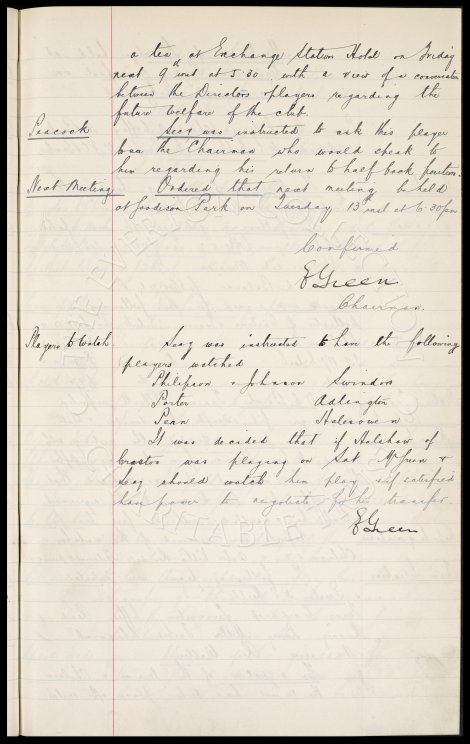 a tea at Exchange Station Hotel on Friday
next 9th inst at 5.30 with a view of a conversation
between the Directors & players regarding the
future welfare of the club.
Peacock Secy was instructed to ask this player
to see the Chairman who would speak to
him regarding his return to half back position.
Next Meeting Ordered that next meeting be held
at Goodison Park on Tuesday 13th inst at 6.30pm
Confirmed
E Green
Chairman.
Players to Watch Secy was instructed to have the following
players watched
Philipson & Johnson Swindon
Porter Adlington
Penn Halesowen
It was decided that if Halshaw of
Croston was playing on Sat Mr &
Secy should watch him play & if satisfied
have power to negotiate for his transfer
E Green
THE EVERTON
CHARITABLE